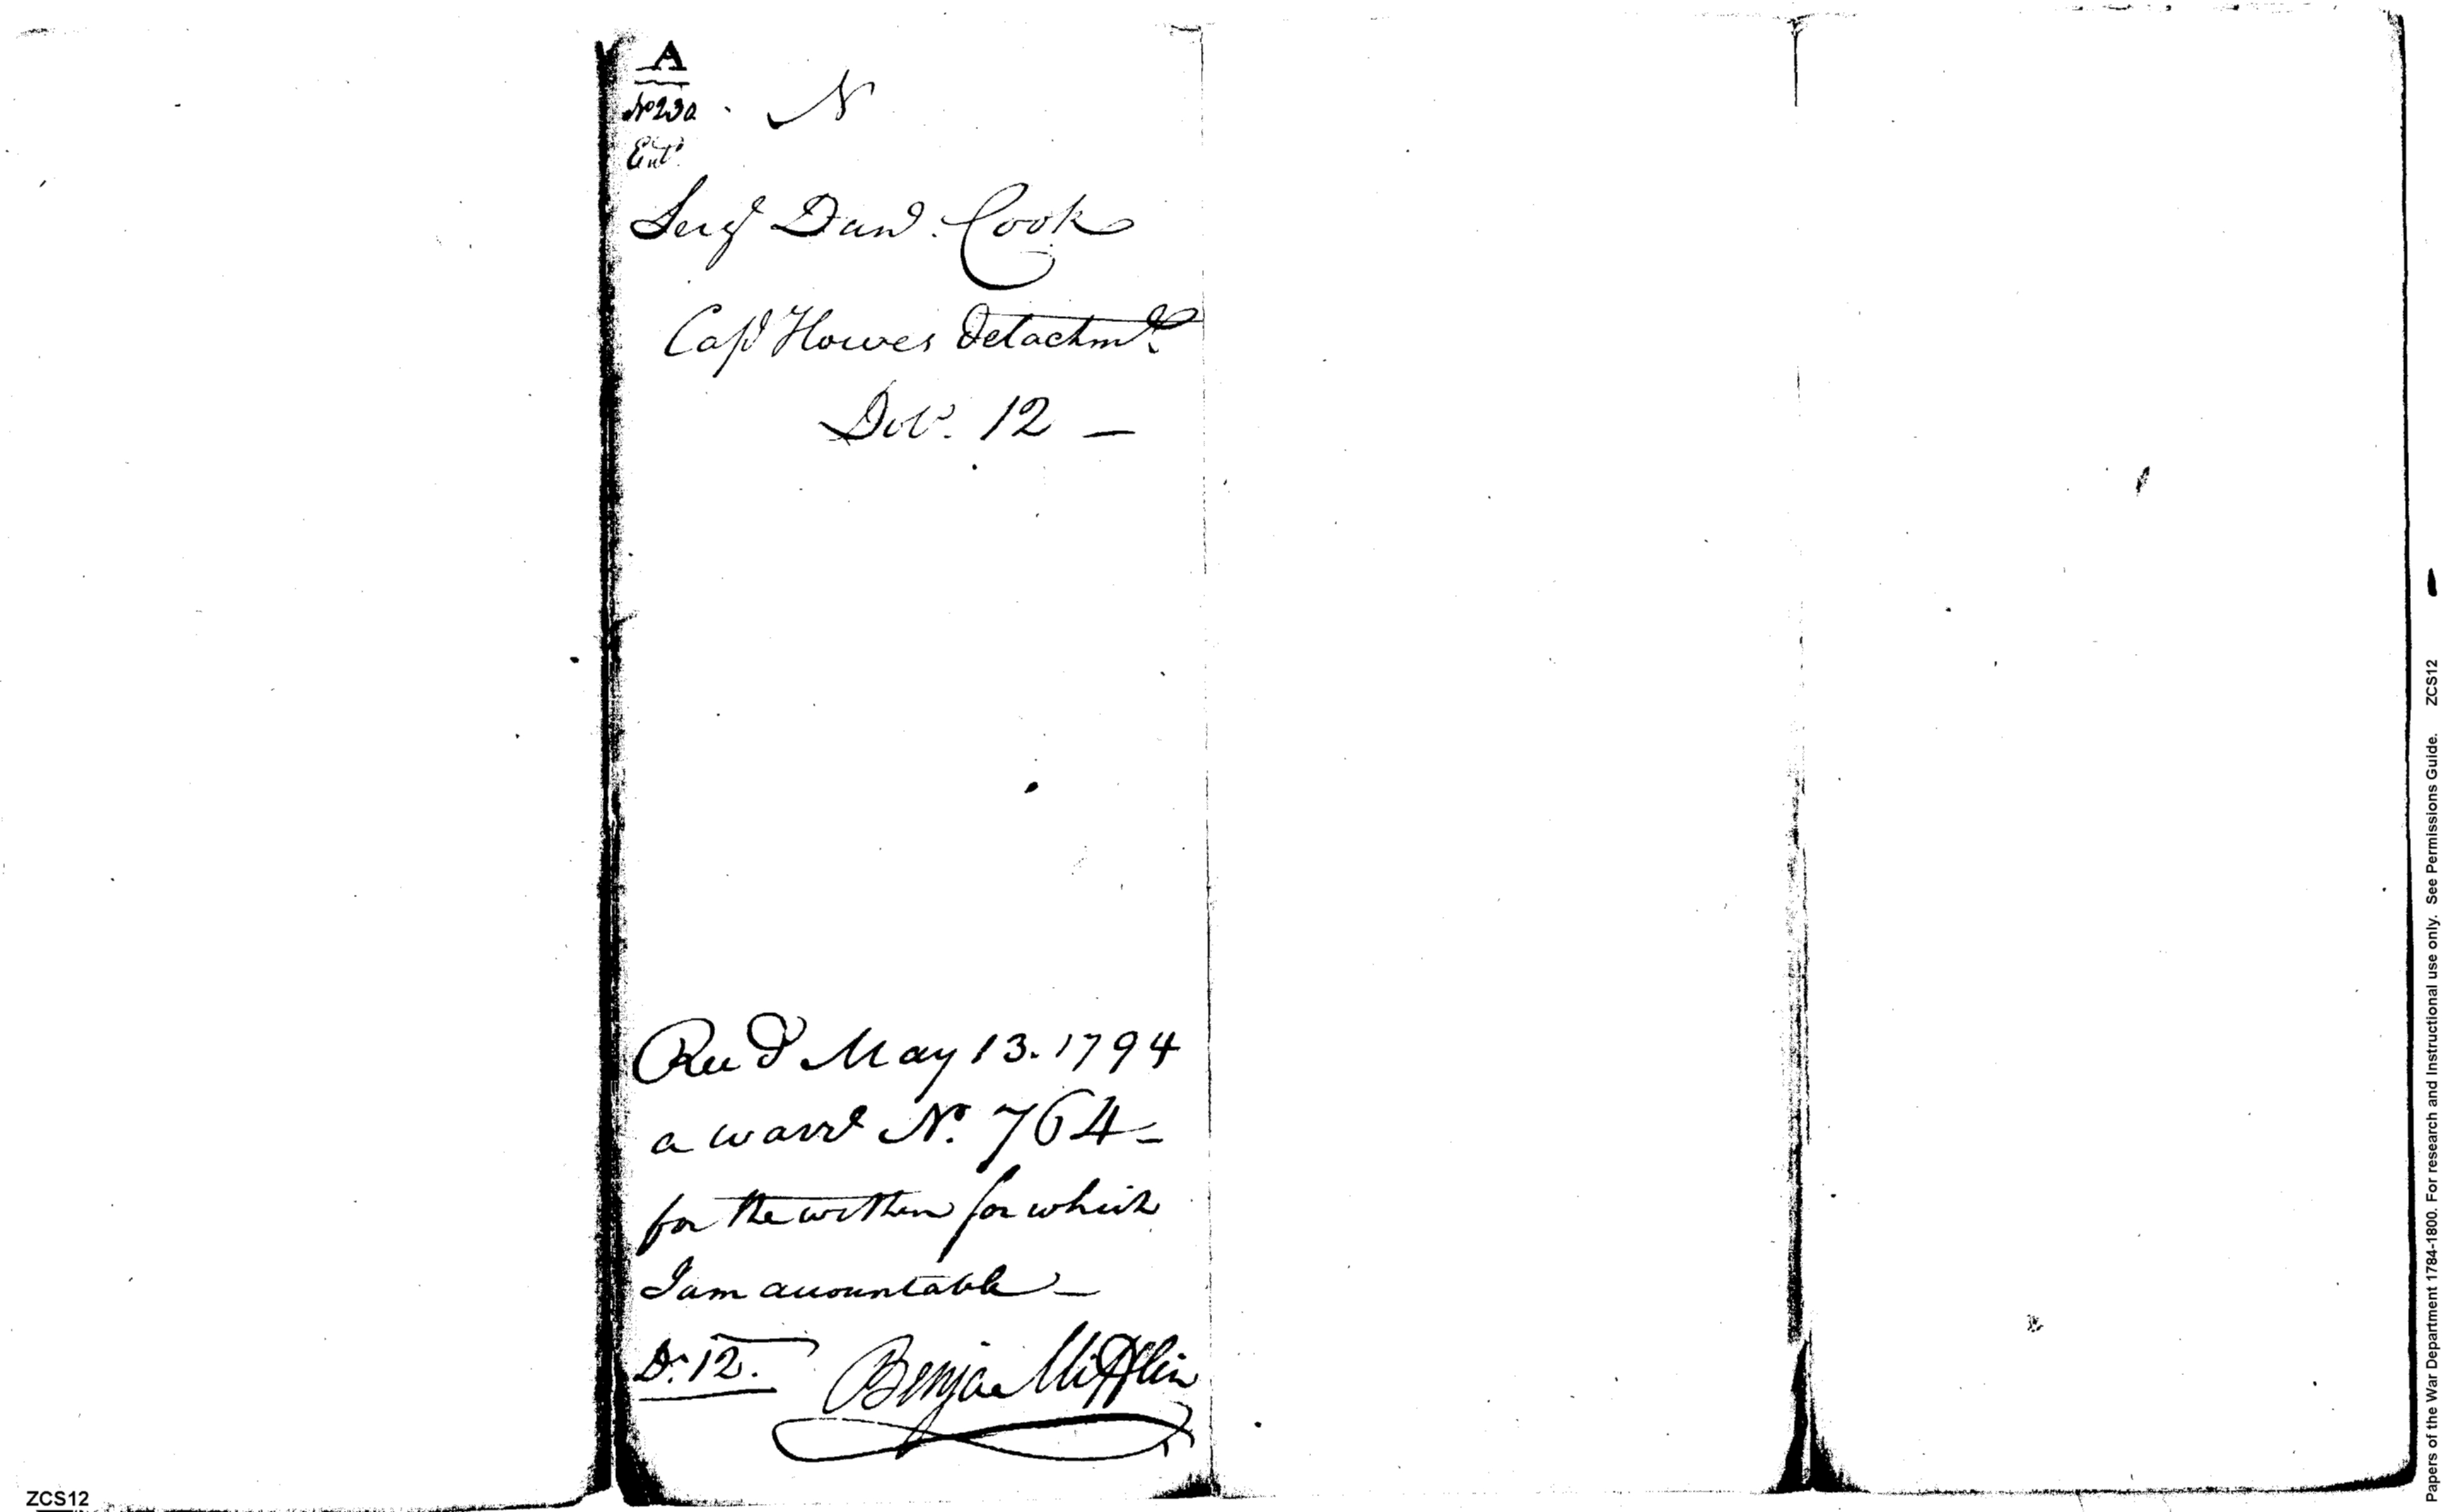 A
No 230 N
Entd
Sergt Danl. Cook
Capt Howes Detachmt.
Dolls. 12 —
Recd May 13. 1794
a warrt No. 764 —
for the within for which
I am accountable —
Ds. 12. Benja Mifflin
ZCS12
Papers of the War Department 1784-1800. For research and Instructional use only. See Permissions Guide. ZCS12